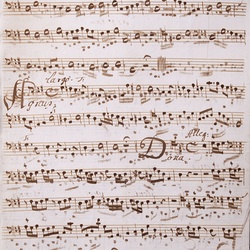 largo
Agnus
alleg:
Dona